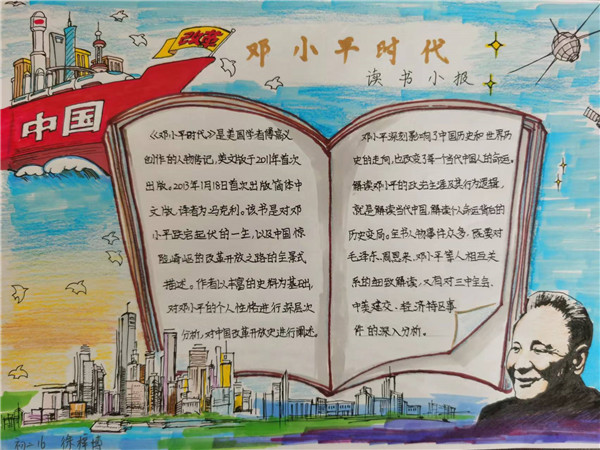 改革
中国
邓小平时代
读书小报
《邓小平时代》是美国学者傅高义
创作的人物传记,英文版于2011年首次
出版。2013年1月18日首次出版简体中
文版,译者为冯克利。该书是对邓
小平跌宕起伏的一生,以及中国惊
险崎岖的改革开放之路的全景式
描述。作者以丰富的史料为基础,
对邓小平的个人性格进行深层次
分析,对中国改革开放史进行阐述。
邓小平深刻影响了中国历史和世界历
史的走向,也改变了每一个当代中国人的命运。
解读邓小平的政治生涯及其行为逻辑,
就是解读当代中国,解读个人命运背后的
历史变局。全书人物事件众多,既要对
毛泽东、周恩来、邓小平等人相互关
系的细致解读,又有对三中全会、
中美建交、经济特区事
件的深入分析。
初二16